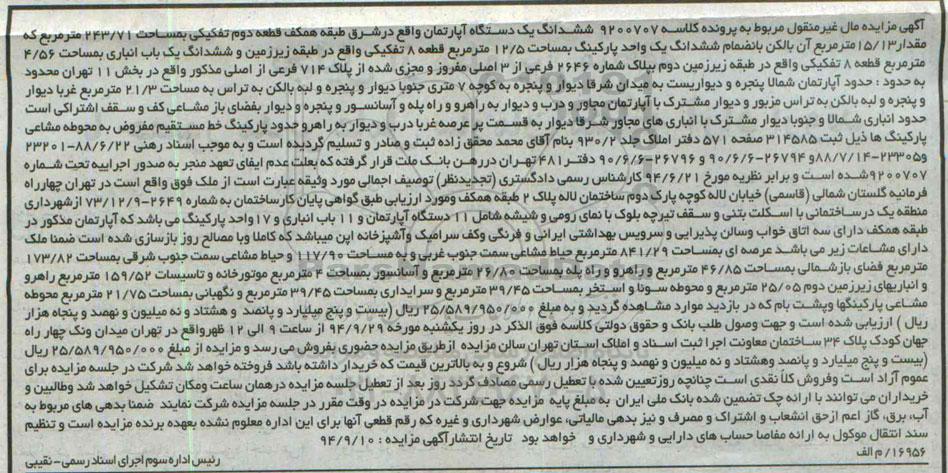 آگهی مزایده مال غیر منقول مربوط به پرونده کلاسه ۹۲۰۰۷۰۷ ششدانگ یک دستگاه آپارتمان واقع در شرق طبقه همکف قطعه دوم تفکیکی بمساحت ۲۴۳/۷۱ مترمربع که
مقدار ۱۵/۱۳ مترمربع آن بالکن بانضمام ششدانگ یک واحد پارکینگ بمساحت ۱۲/۵ مترمربع قطعه ۸ تفکیکی واقع در طبقه زیرزمین و ششدانگ یک باب انباری بمساحت ۴/۵۶
مترمربع قطعه ۸ تفکیکی واقع در طبقه زیرزمین دوم بپلاک شماره ۲۶۴۶ فرعی از ۳ اصلی مفروز و مجزی شده از پلاک ۷۱۴ فرعی از اصلی مذکور واقع در بخش ۱۱ تهران محدود
به حدود : حدود آپارتمان شمالا پنجره و دیواریست به میدان شرقا دیوار و پنجره به کوچه ۷ متری جنوبا دیوار و پنجره و لبه بالکن به تراس به مساحت ۲۱/۳ مترمربع غربا دیوار
و پنجره و لبه بالکن به تراس مزبور و دیوار مشترک با آپارتمان مجاور و درب و دیوار به راهرو و راه پله و آسانسور و پنجره و دیوار بفضای باز مشاعی کف و سقف اشتراکی است
حدود انباری شمالا و جنوبا دیوار مشترک با انباری های مجاور شرقا دیوار به قسمت پر عرصه غربا درب و دیوار به راهرو حدود پارکینگ خط مستقیم مفروض به محوطه مشاعی
پارکینگ ها ذیل ثبت ۳۱۴۵۸۵ صفحه ۵۷۱ دفتر املاک جلد ۹۳۰/۲ بنام آقای محمد محقق زاده ثبت و صادر و تسلیم گردیده است و به موجب اسناد رهنی ۸۸/۶/۲۲-۲۳۲۰۱
و ۲۳۳۰۵-۸۸/۷/۱۴ و ۲۶۷۹۴-۹۰/۶/۶ و ۲۶۷۹۶-۹۰/۶/۶ دفتر ۴۸۱ تهران در رهن بانک ملت قرار گرفته که بعلت عدم ایفای تعهد منجر به صدور اجراییه تحت شماره
۹۲۰۰۷۰۷ شده است و برابر نظریه مورخ ۹۴/۶/۲۱ کارشناس رسمی دادگستری (تجدیدنظر) توصیف اجمالی مورد وثیقه عبارت است از ملک فوق واقع است در تهران چهارراه
فرمانیه گلستان شمالی (قاسمی) خیابان لاله کوچه پارک دوم ساختمان لاله پلاک ۲ طبقه همکف ومورد ارزیابی طبق گواهی پایان کار ساختمان به شماره ۲۶۴۹-۷۳/۱۲/۹ از شهرداری
منطقه یک در ساختمانی با اسکلت بتنی و سقف تیرچه بلوک با نمای رومی و شیشه شامل ۱۱ دستگاه آپارتمان و ۱۱ باب انباری و ۱۷ واحد پارکینگ می باشد که آپارتمان مذکور در
طبقه همکف دارای سه اتاق خواب وسالن پذیرایی و سرویس بهداشتی ایرانی و فرنگی وکف سرامیک وآشپزخانه اپن میباشد که کاملا وبا مصالح روز بازسازی شده است ضمنا ملک
دارای مشاعات زیر می باشد عرصه ای بمساحت ۸۴۱/۲۹ مترمربع حیاط مشاعی سمت جنوب غربی و به مساحت ۱۱۷/۹۰ و حیاط مشاعی سمت جنوب شرقی بمساحت ۱۷۳/۸۲
مترمربع فضای باز شمالی بمساحت ۴۶/۸۵ مترمربع و راهرو و راه پله بمساحت ۲۶/۸۰ مترمربع و آسانسور بمساحت ۴ مترمربع موتورخانه و تاسیسات ۱۵۹/۵۲ مترمربع راهرو
و انباریهای زیرزمین دوم ۲۵/۰۵ مترمربع و محوطه سونا و استخر بمساحت ۳۹/۴۵ مترمربع و سرایداری بمساحت ۳۹/۴۵ مترمربع و نگهبانی بمساحت ۲۱/۷۵ مترمربع محوطه
مشاعی پارکینگها وپشت بام که در بازدید موارد مشاهده گردید و به مبلغ ۲۵/۵۸۹/۹۵۰/۰۰۰ ریال (بیست و پنج میلیارد و پانصد و هشتاد و نه میلیون و نهصد و پنجاه هزار
ریال ) ارزیابی شده است و جهت وصول طلب بانک و حقوق دولتی کلاسه فوق الذکر در روز یکشنبه مورخه ۹۴/۹/۲۹ از ساعت ۹ الی ۱۲ ظهر واقع در تهران میدان ونک چهار راه
جهان کودک پلاک ۳۴ ساختمان معاونت اجرا ثبت اسناد و املاک استان تهران سالن مزایده از طریق مزایده حضوری بفروش می رسد و مزایده از مبلغ ۲۵/۵۸۹/۹۵۰/۰۰۰ ریال
(بیست و پنج میلیارد و پانصد وهشتاد و نه میلیون و نهصد و پنجاه هزار ریال) شروع و به بالاترین قیمت که خریدار داشته باشد فروخته خواهد شد شرکت در جلسه مزایده برای
عموم آزاد است وفروش کلاً نقدی است چنانچه روز تعیین شده با تعطیل رسمی مصادف گردد روز بعد از تعطیل جلسه مزایده در همان ساعت ومکان تشکیل خواهد شد وطالبین و
خریداران می توانند با ارائه چک تضمین شده بانک ملی ایران به مبلغ پایه مزایده جهت شرکت در مزایده در وقت مقرر در جلسه مزایده شرکت نمایند ضمنا بدهی های مربوط به
آب، برق، گاز اعم از حق انشعاب و اشتراک و مصرف و نیز بدهی مالیاتی، عوارض شهرداری و غیره که رقم قطعی آنها برای این اداره معلوم نشده بعهده برنده مزایده است و تنظیم
سند انتقال موکول به ارائه مفاصا حساب های دارایی و شهرداری و خواهد بود تاریخ انتشار آگهی مزایده : ۹۴/۹/۱۰
۱۶۹۵۶/ م الف
رئیس اداره سوم اجرای اسناد رسمی - نقیبی